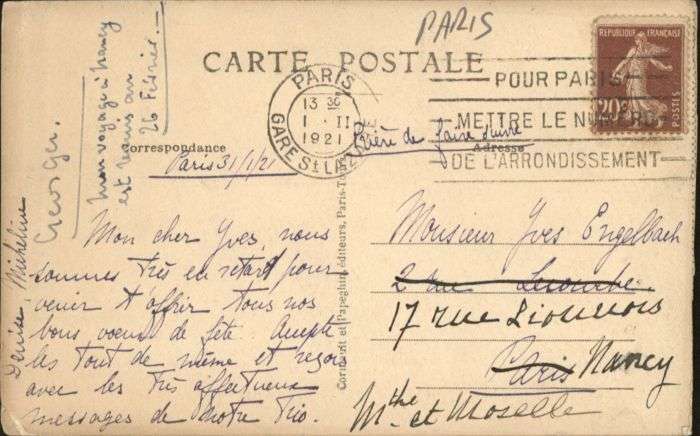 PARIS
CARTE POSTALE
PARIS
13 30
1 - II
1921
GARE St LAZARE
POUR PARIS
METTRE LE NUMERO
DE L'ARRONDISSEMENT
REPUBLIQUE FRANÇAISE
20c
POSTES
Correspondance
Adresse
Prière de faire suivre
Paris 31/1/21
Mon cher Yves, nous
sommes très en retard pour
venir t'offrir tous nos
bons voeux de fête Accepte
les tout de même et reçois
avec les très affectueux
messages de notre trio.
Denise, Micheline
Georges.
mon voyage à Nancy
est remis au
26 Février.
Cormault et Papeghin, éditeurs, Paris
Monsieur Yves Engelbach
2 rue Lecourbe
17 rue Lionnois
Paris Nancy
Mthe et Moselle